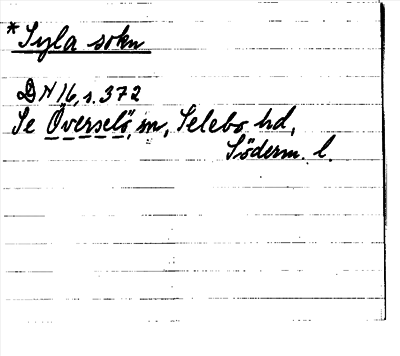 *Syla sokn
DN 16, s. 372
Se Överselö, sn, Selebo hd,
Söderm. l.